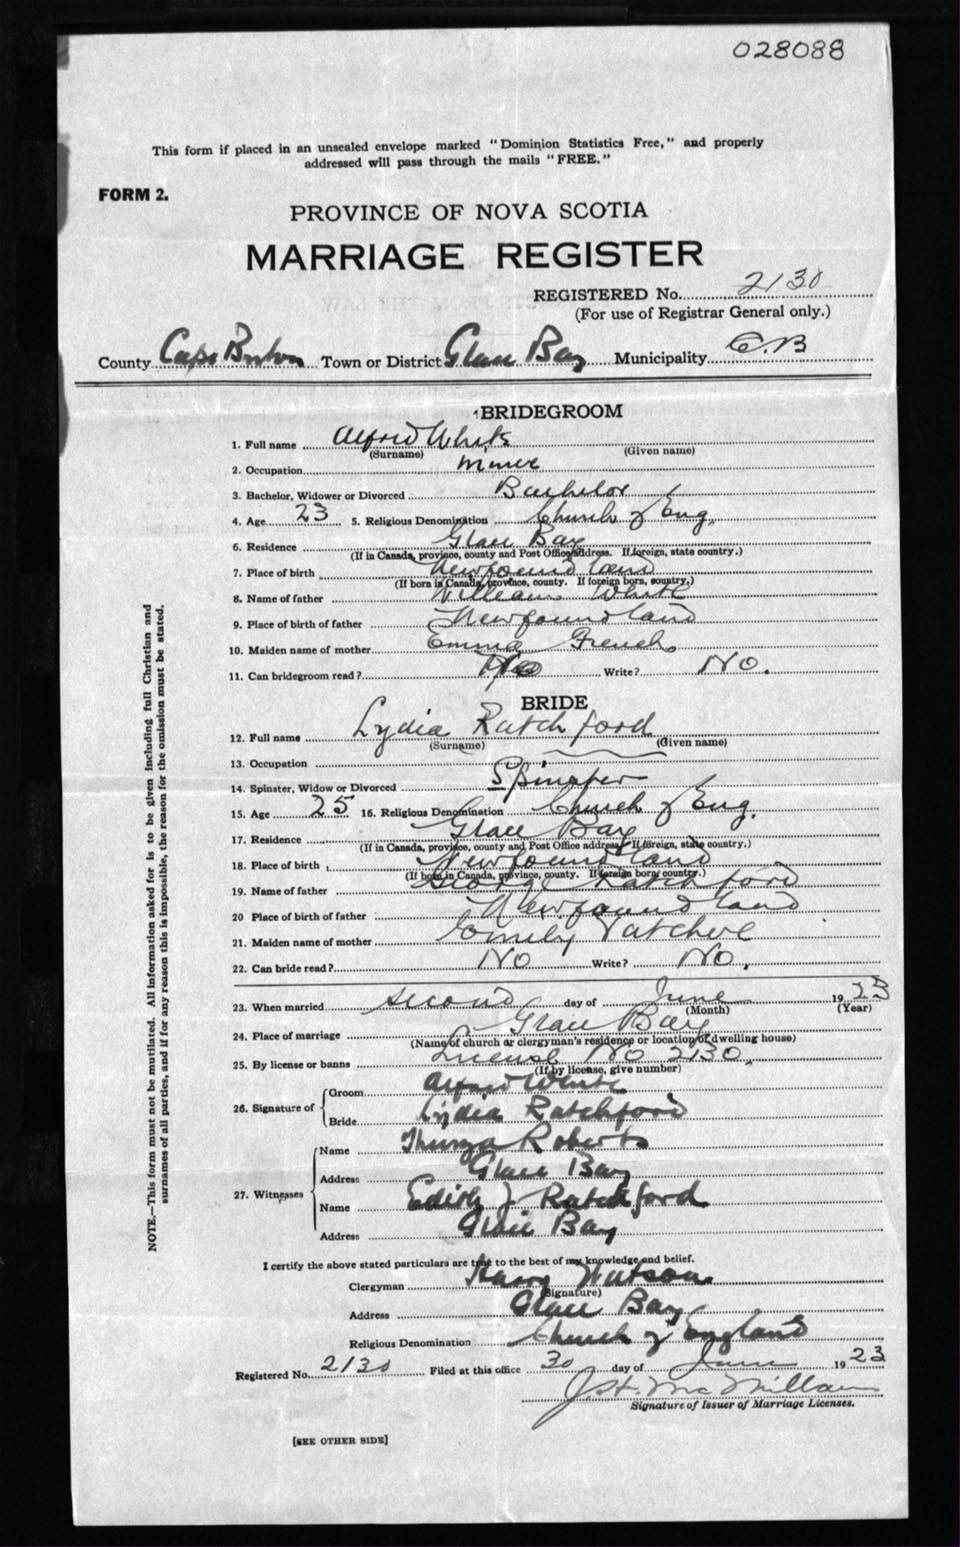 028088
This form if placed in an unsealed envelope marked "Dominion Statistics Free," and properly
addressed will pass through the mails "FREE."
FORM 2.
PROVINCE OF NOVA SCOTIA
MARRIAGE REGISTER
REGISTERED No. 2130
(For use of Registrar General only.)
County Cape Breton Town or District Glace Bay Municipality C.B
BRIDEGROOM
1. Full name Alfred White
(Surname) (Given name)
2. Occupation Miner
3. Bachelor, Widower or Divorced Bachelor
4. Age 23 5. Religious Denomination Church of Eng.
6. Residence Glace Bay
(If in Canada, province, county and Post Office address. If foreign, state country.)
7. Place of birth Newfoundland
(If born in Canada, province, county. If foreign born, country.)
8. Name of father William White
9. Place of birth of father Newfoundland
10. Maiden name of mother Emma French
11. Can bridegroom read? No Write? No.
BRIDE
12. Full name Lydia Ratchford
(Surname) (Given name)
13. Occupation
14. Spinster, Widow or Divorced Spinster
15. Age 25 16. Religious Denomination Church of Eng.
17. Residence Glace Bay
(If in Canada, province, county and Post Office address. If foreign, state country.)
18. Place of birth Newfoundland
(If born in Canada, province, county. If foreign born, country.)
19. Name of father George Ratchford
20 Place of birth of father Newfoundland
21. Maiden name of mother Emily
22. Can bride read? No Write? No.
23. When married second day of June 1923
(Month) (Year)
24. Place of marriage Glace Bay
(Name of church or clergyman's residence or location of dwelling house)
25. By license or banns License No 2130
(If by license, give number)
26. Signature of Groom Alfred White
Bride Lydia Ratchford
27. Witnesses Name Thurza Roberts
Address Glace Bay
Name Edith J Ratchford
Address Glace Bay
I certify the above stated particulars are true to the best of my knowledge and belief.
Clergyman Harry Watson
(Signature)
Address Glace Bay
Religious Denomination Church of England
Registered No. 2130 Filed at this office 30 day of June 1923
J. H. McMillan
Signature of Issuer of Marriage Licenses.
[SEE OTHER SIDE]
NOTE.—This form must not be mutilated. All information asked for is to be given including full Christian and
surnames of all parties, and if for any reason this is impossible, the reason for the omission must be stated.